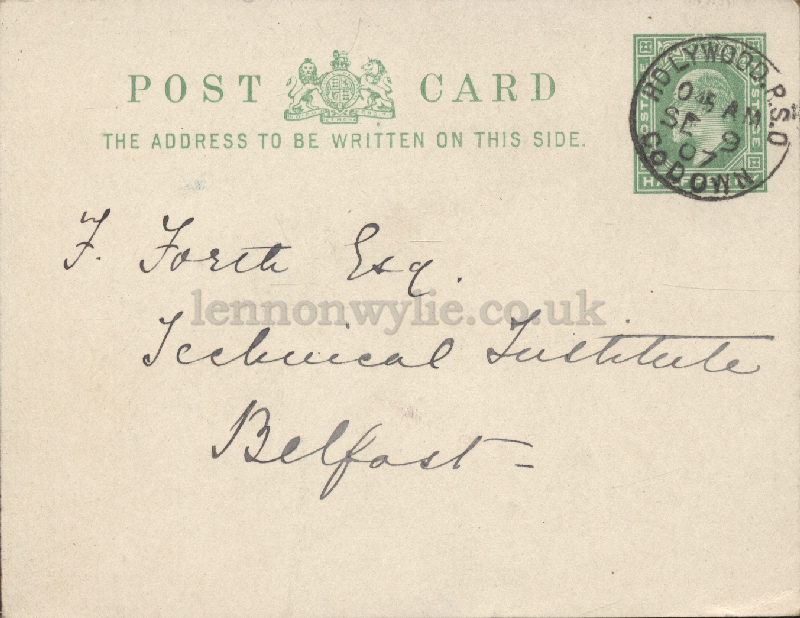 POST CARD
THE ADDRESS TO BE WRITTEN ON THIS SIDE.
HOLYWOOD.R.S.O
AM
SE 9
07
Co DOWN
F. Forth Esq.
lennonwylie.co.uk
Technical Institute
Belfast -